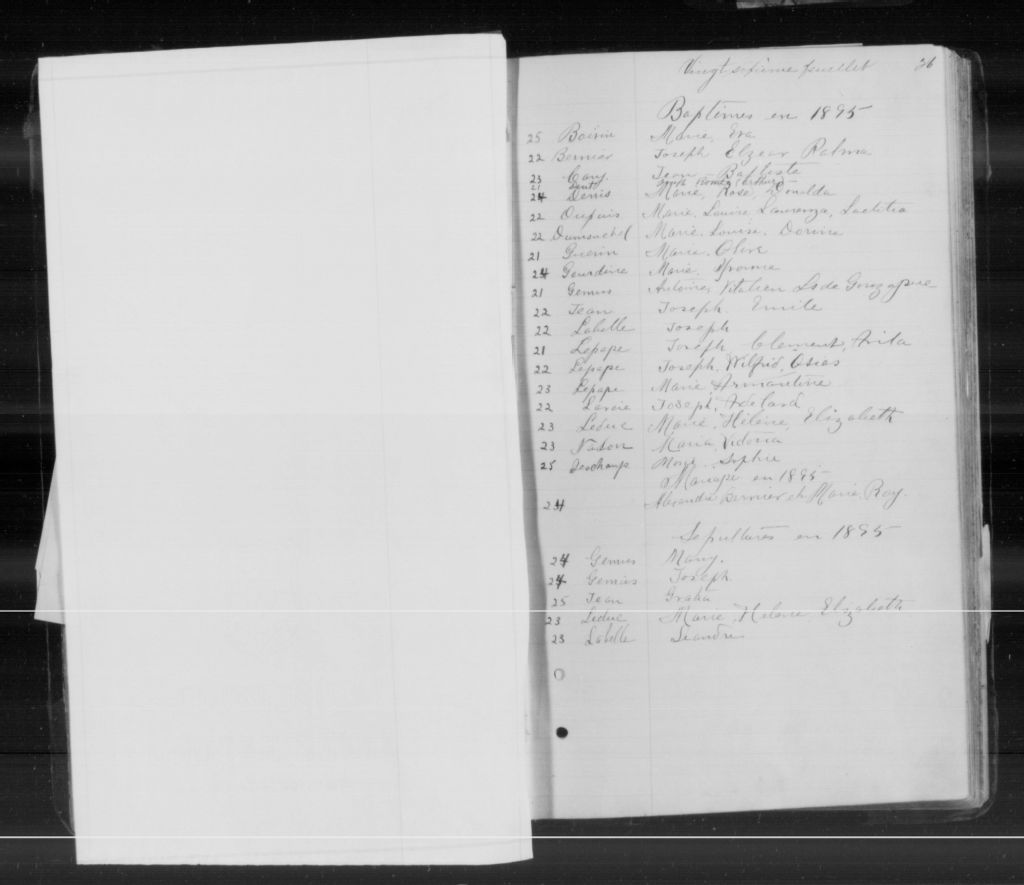 Vingt sixième feuillet 26
Baptêmes en 1895
25 Marie, Eva
22 Bernier Joseph Elzear Palma
23 Cary Jean Baptiste
21 Joseph Romeo Arthur
24 Denis Marie, Rose, Donalda
22 Dupuis Marie, Louise, Laurenza, Laetitia
22 Dumouchel Marie, Louise, Dorina
21 Guerin Marie, Olive
24 Gourdine Marie, Yvonne
21 Antoine, Vitalien Ls de Gonzague
22 Jean Joseph Emile
22 Labelle Joseph
21 Lepage Joseph Clement, Arila
22 Lepage Joseph, Wilfrid, Osias
23 Lepage Marie Armantine
22 Joseph, Adelard
23 Leduc Marie, Hélène, Elizabeth
23 Nadon Maria, Victoria
25 Deschamps Sophie
Mariage en 1895
24 Alexandre Bernier et Marie Roy.
Sépultures en 1895
24 Mary.
24 Joseph
25 Jean
23 Leduc Marie, Hélène Elizabeth
23 Labelle Léandre